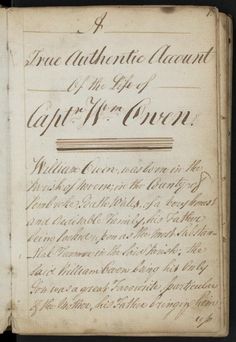 A
True Authentic Account
Of the Life of
Captn. Wm. Owen.
William Owen, was born in the
Parish of Nevern, in the County of
Pembroke South Wales, of a very honest
and Creditable Family, his Father
being looked upon as the most Substan-
tial Farmer in the said Parish, the
said William Owen being his Only
Son was a great Favourite, particular
of the Mother, his Father bringing him
up